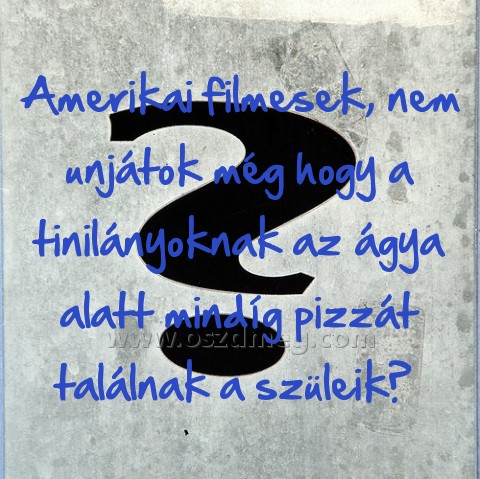 Amerikai filmesek, nem
unjátok még hogy a
tinilányoknak az ágya
alatt mindíg pizzát
www.oszdmeg.com
találnak a szüleik?